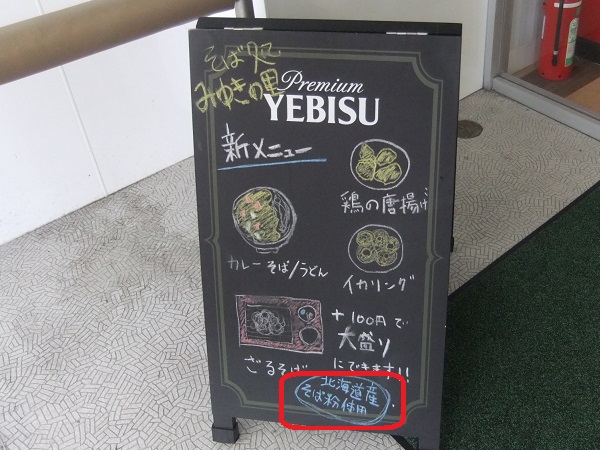 そば処
みゆきの里
Premium
YEBISU
新メニュー
鶏の唐揚げ
カレーそば/うどん
イカリング
ざるそば
+100円で
大盛り
にできます!!
北海道産
そば粉使用